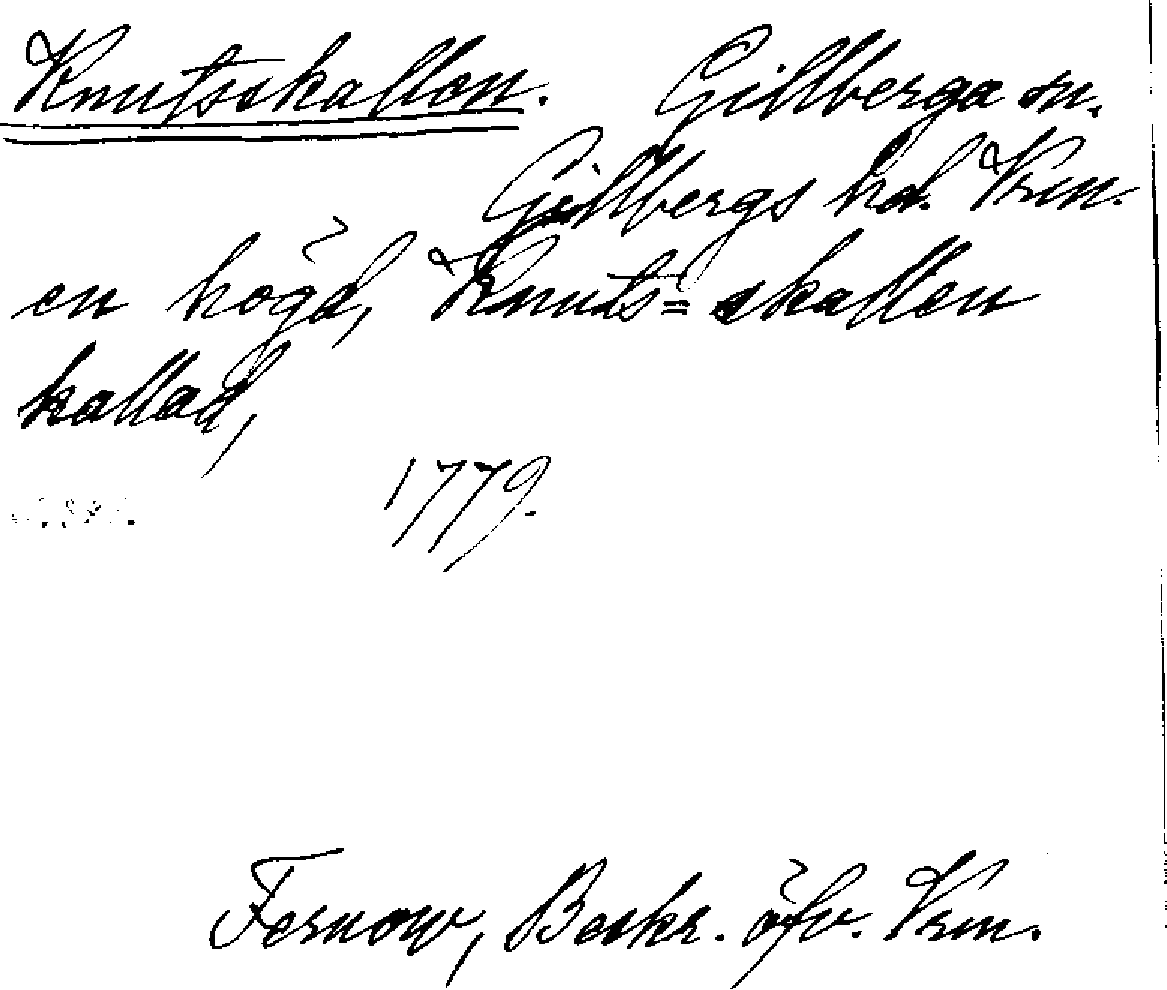 Knutsskallen. Gillberga sn.
Gillbergs hd. Vrm.
en högd, Knuts=skallen
kallad,
1779.
Fernow, Beskr. öfv. Vrm.